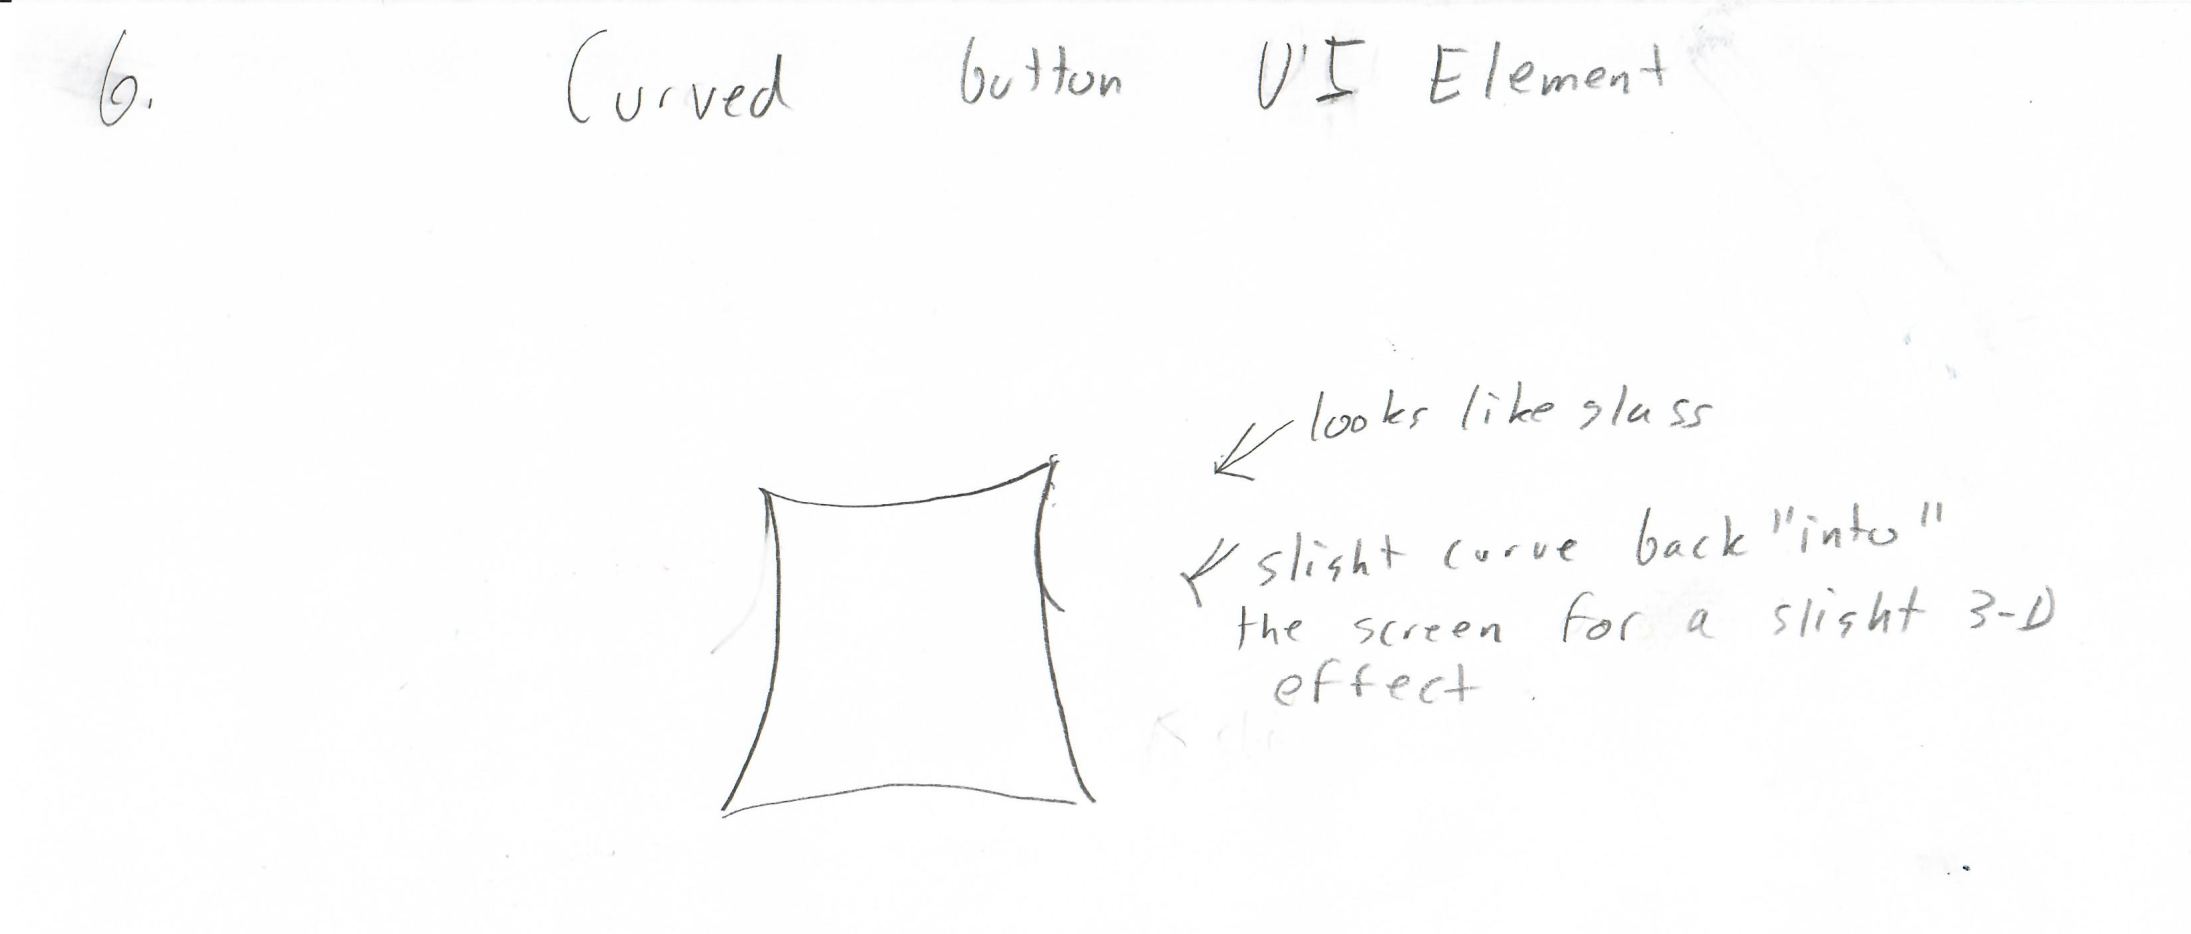 6. Curved button UI Element
looks like glass
slight curve back "into"
the screen for a slight 3-D
effect.